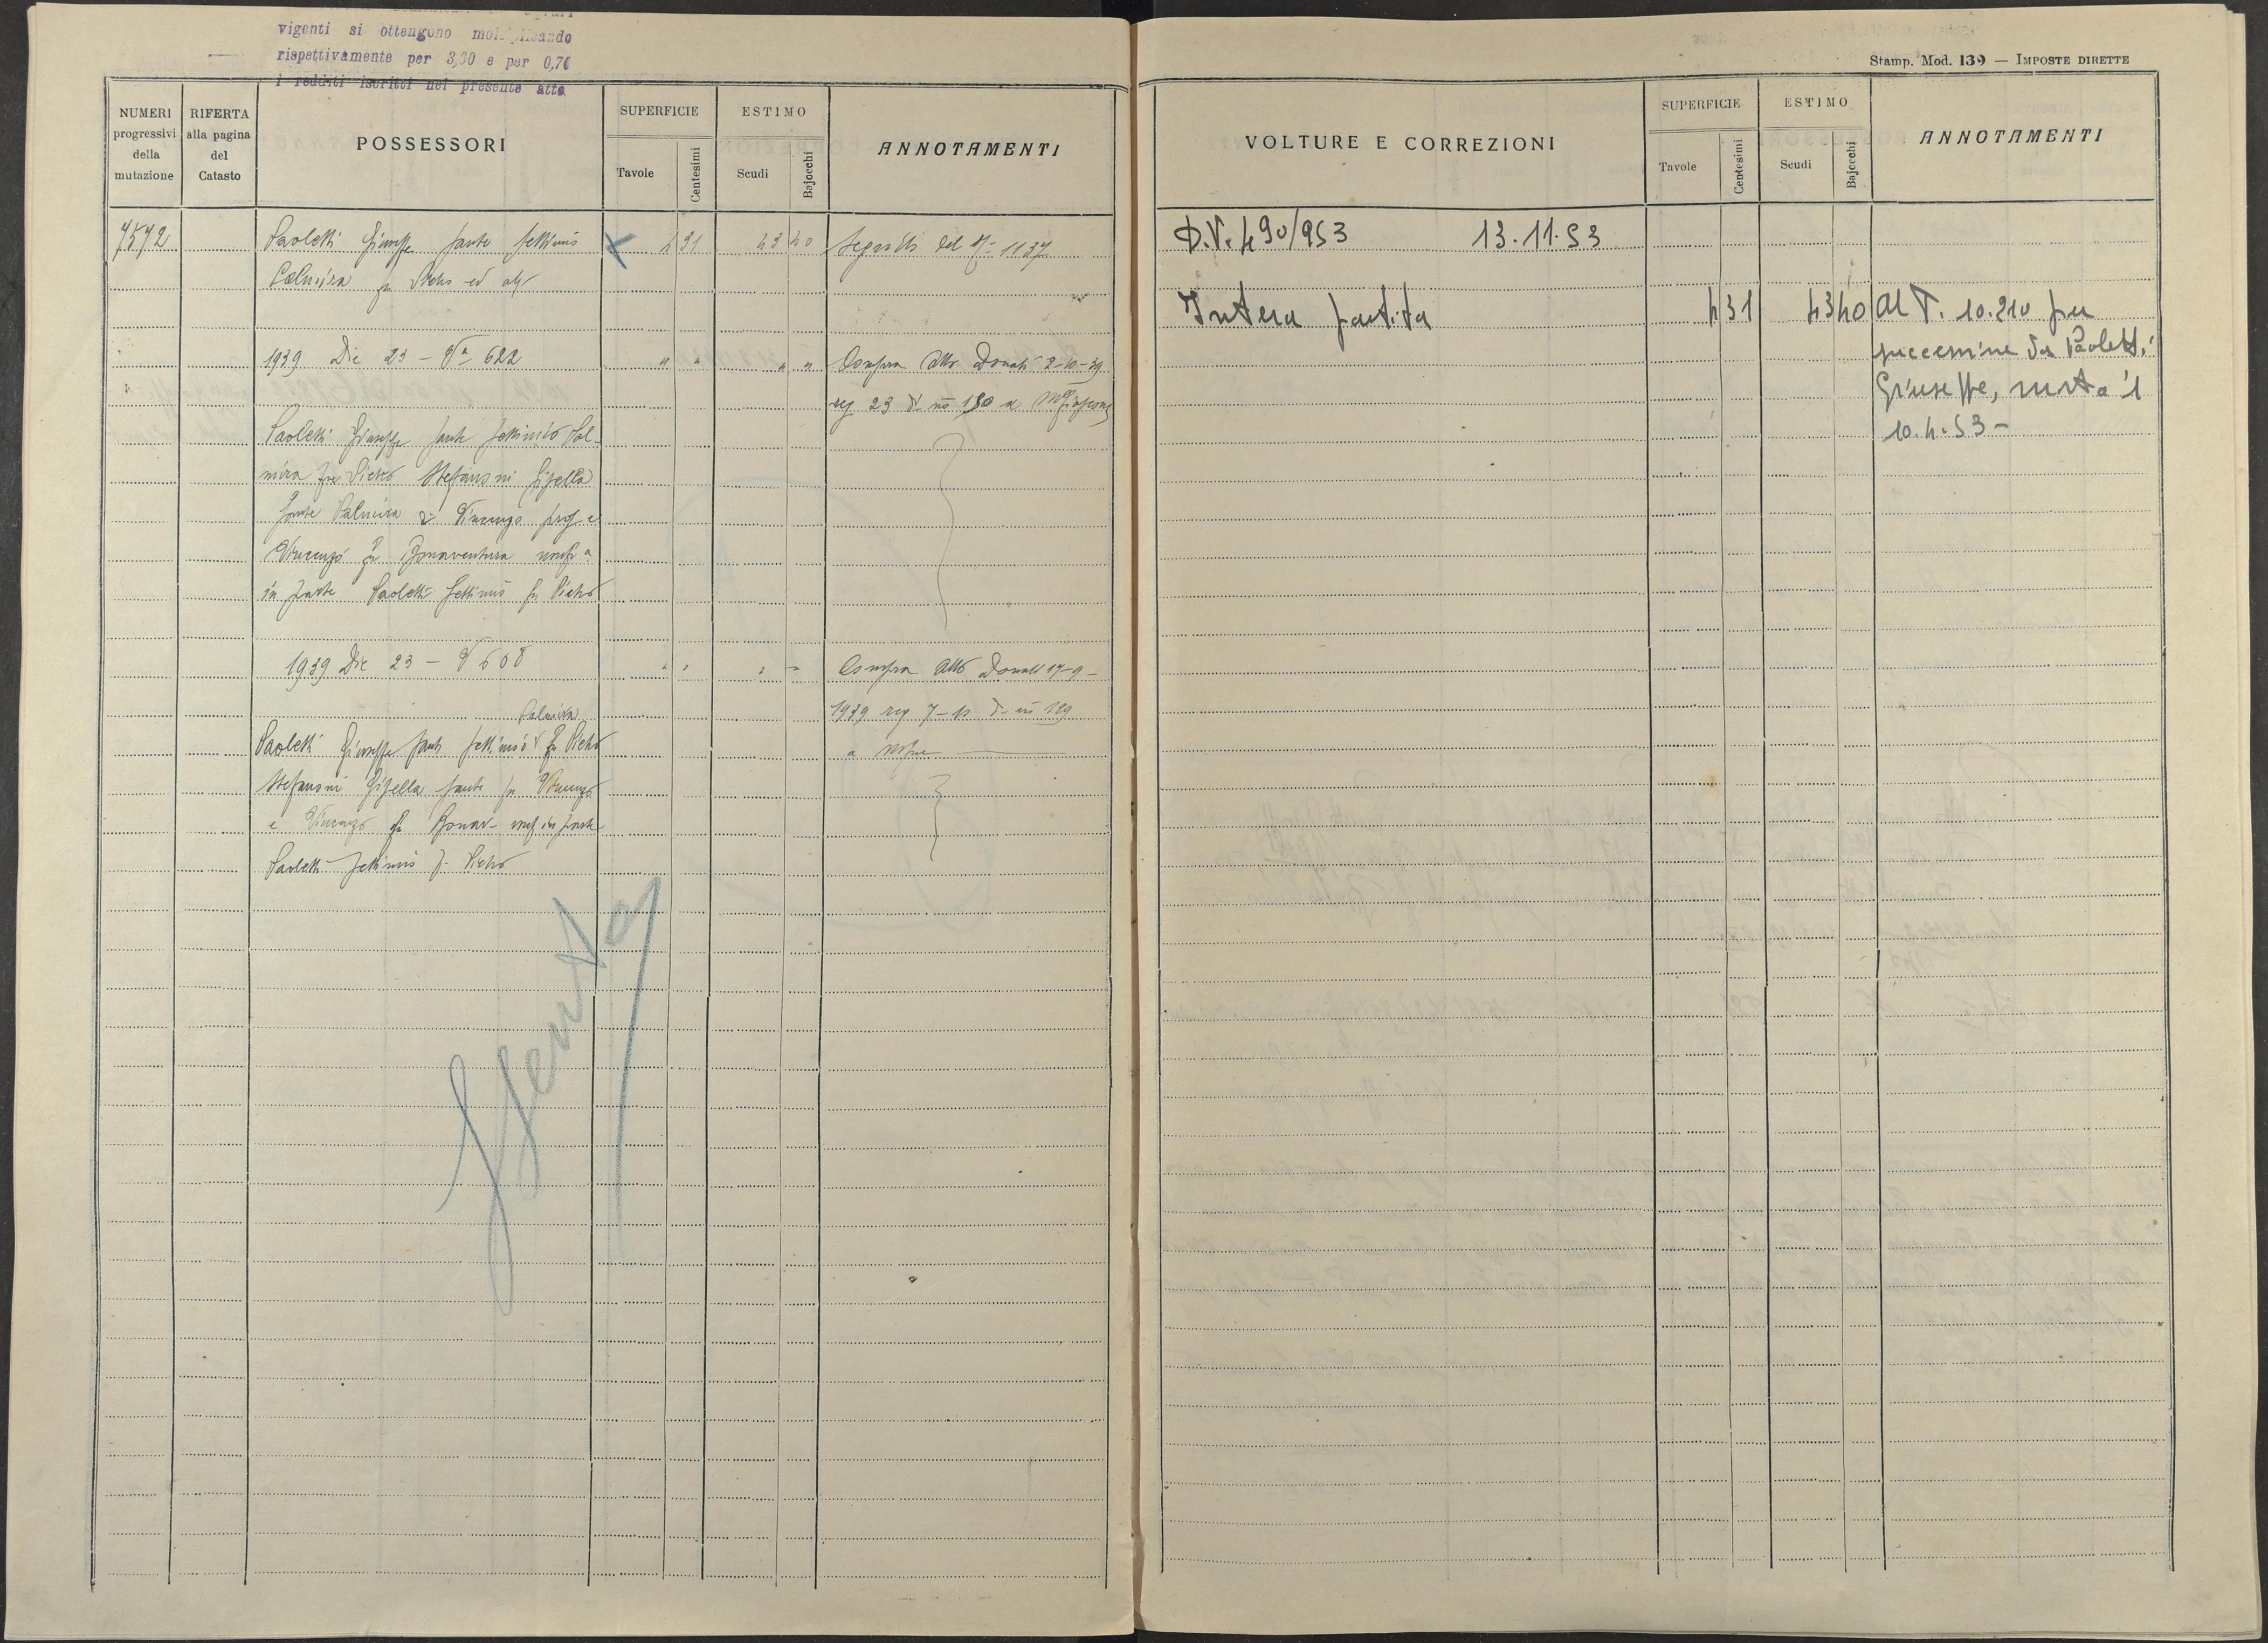 vigenti si ottengono moltiplicando
rispettivamente per 3,30 e per 0,70
i redditi iscritti nel presente atto
NUMERI progressivi della mutazione
RIFERTA alla pagina del Catasto
POSSESSORI
SUPERFICIE
Tavole
Centesimi
ESTIMO
Scudi
Bajocchi
ANNOTAMENTI
7572 Paoletti Giuseppe Sante Settimio 4 31 43 40
Palmira fu Pietro ed
1939 Dic 23 - 622 " " " " Compra Atto Donati 2-10-39
reg 23 n° 190 a
Paoletti Giuseppe Sante Settimio Pal-
mira fu Pietro Stefanoni Gisella
Sante Palmira Vincenzo
Vincenzo fu Bonaventura
in parte Paoletti Settimio fu Pietro
1939 Dic 23 - 608 " " " " Compra Atto Donati 17-9-
1939 reg 7-10 n° 189
Palmira
Paoletti Giuseppe Sante Settimio fu Pietro
Stefanoni Gisella Sante fu Vincenzo
e Vincenzo fu Bonav- in parte
Paoletti Settimio fu Pietro
Spenta
Stamp. Mod. 139 — IMPOSTE DIRETTE
VOLTURE E CORREZIONI
SUPERFICIE
Tavole
Centesimi
ESTIMO
Scudi
Bajocchi
ANNOTAMENTI
D.V. 490/953 13.11.53
Intera partita 4 31 43 40 Al P. 10.210 per
successione da Paoletti
Giuseppe, morto il
10.4.53-